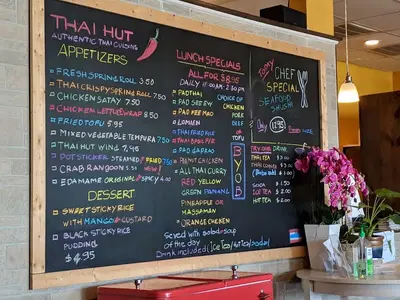 THAI HUT
AUTHENTIC THAI CUISINE
APPETIZERS
FRESH SPRING ROLL 3.50
THAI CRISPY SPRING ROLL 7.50
CHICKEN SATAY 7.50
CHICKEN LETTUCE WRAP 8.50
FRIED TOFU 5.95
MIXED VEGETABLE TEMPURA 7.50
THAI HUT WING 7.95
POTSTICKER STEAMED / FRIED 7.50
CRAB RANGOON 5.50
EDAMAME ORIGINAL / SPICY 4.00
NEW!
DESSERT
SWEET STICKY RICE
WITH MANGO & CUSTARD
BLACK STICKY RICE
PUDDING
$4.95
LUNCH SPECIALS
ALL FOR $8.95
DAILY 11 AM - 2:30 PM
PAD THAI
PAD SEE EW
PAD KEE MAO
LO MEIN
THAI FRIED RICE
THAI BASIL
PAD GARPAO
PRIK CHICKEN
ALL THAI CURRY
RED YELLOW
GREEN PANANG
PINEAPPLE OR
MASSAMAN
ORANGE CHICKEN
CHOICE OF
CHICKEN
PORK
BEEF
OR
TOFU
BYOB
Served with salad or soup
of the day
Drink included (Ice Tea/Hot Tea/soda)
Today
CHEF
SPECIAL
SEAFOOD
Day
DRINK
THAI TEA $3.00
THAI COFFEE $3.00
SODA $1.50
ICE TEA $2.00
HOT TEA $2.00